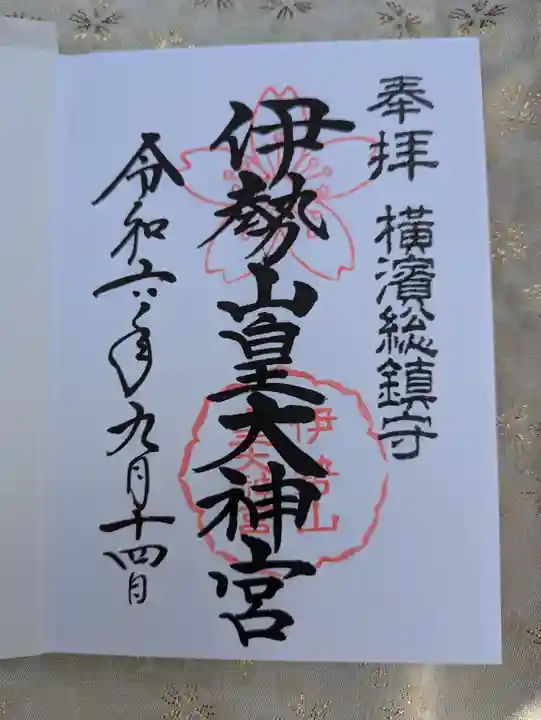 奉拝 横濱総鎮守
伊勢山皇大神宮
伊勢山
皇大神宮
令和六年九月十四日